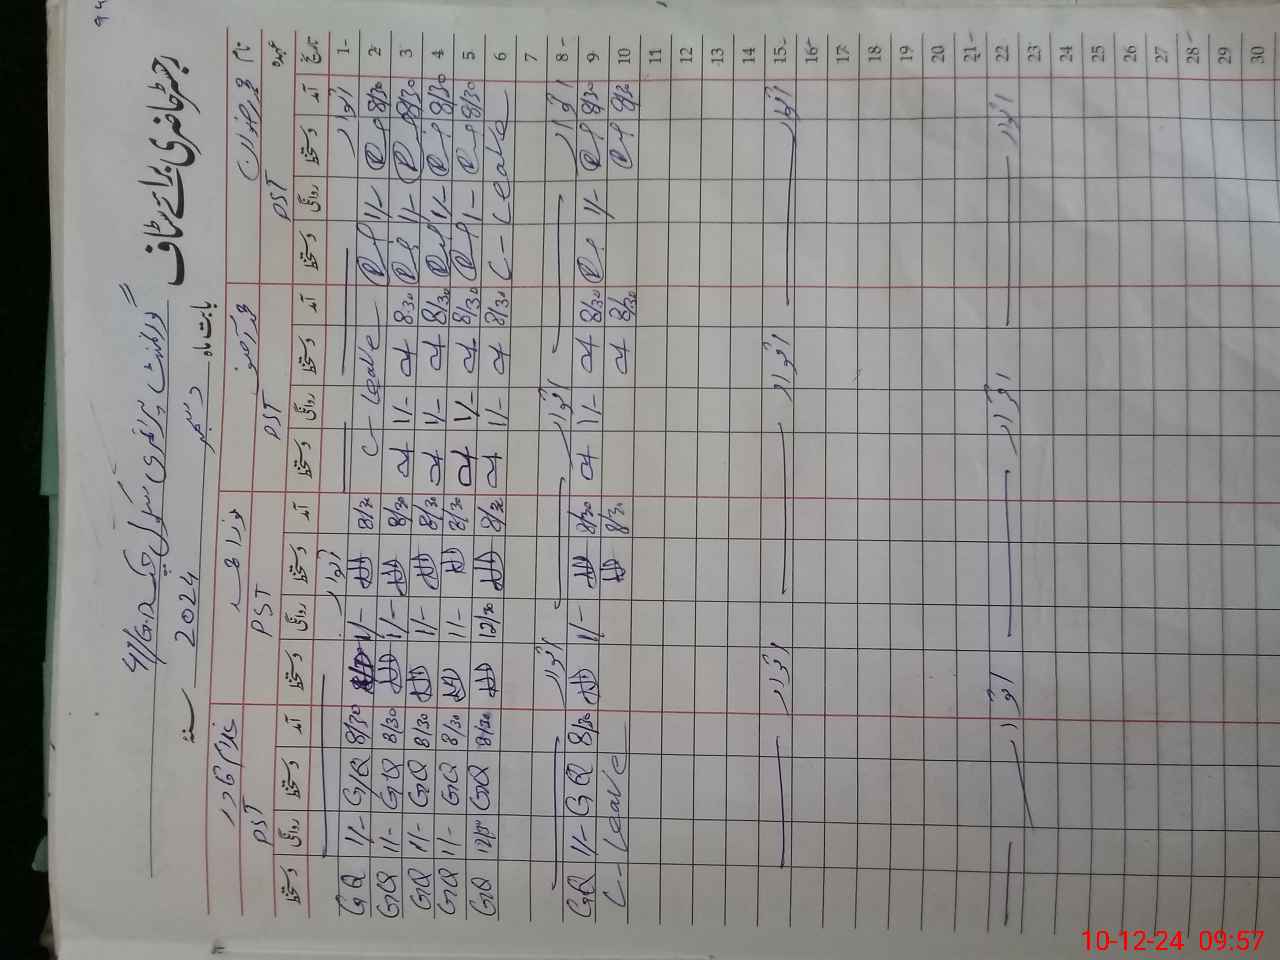 رجسٹر حاضری برائے سٹاف
گورنمنٹ پرائمری سکول چک 41/G.D
بابت ماہ دسمبر سنہ 2024
نام
عہدہ PST PST PST PST
غلام قادر
تاریخ آمد دستخط روانگی دستخط آمد دستخط روانگی دستخط آمد دستخط روانگی دستخط آمد دستخط روانگی دستخط
1- اتوار اتوار
2 8/30 1/- C- Leave 8/30 1/- 8/30 GQ 1/- GQ
3 8/30 1/- 8:30 1/- 8/30 1/- 8/30 GQ 1/- GQ
4 8/30 1/- 8/30 1/- 8/30 1/- 8/30 GQ 1/- GQ
5 8/30 1/- 8/30 1/- 8/30 1/- 8/30 GQ 1/- GQ
6 C- Leave 8/30 1/- 8/30 12/30 8/30 GQ GQ
7
8- اتوار اتوار اتوار
9 8/30 1/- 8/30 1/- 8/30 1/- 8/30 GQ 1/- GQ
10 8/30 8/30 8/30 C- Leave
11
12
13
14
15- اتوار اتوار اتوار
16
17
18
19
20
21-
22 اتوار اتوار اتوار
23
24
25
26
27
28-
29
30
10-12-24 09:57